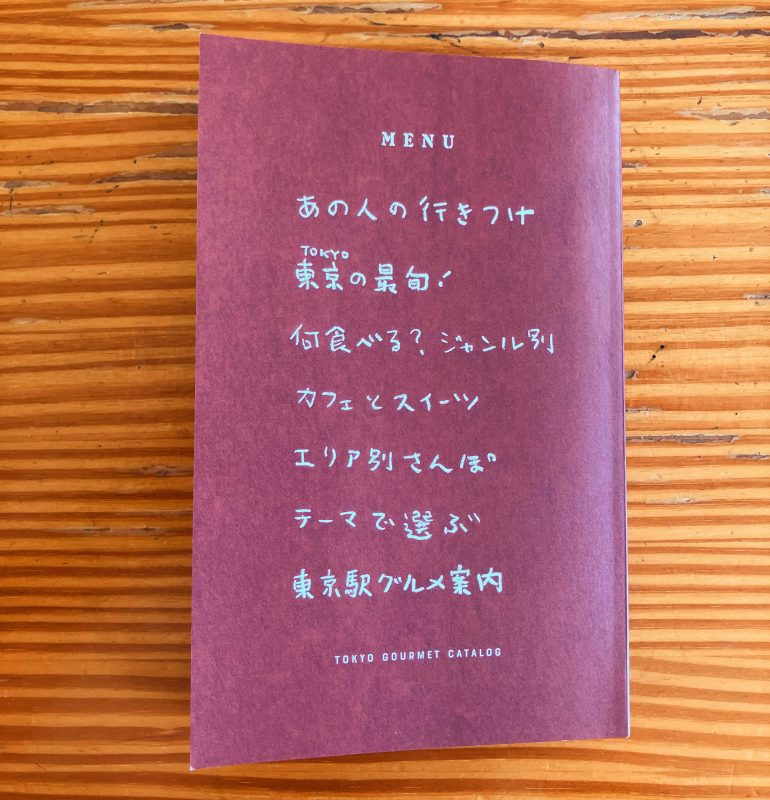 MENU
あの人の行きつけ
TOKYO
東京の最旬!
何食べる?ジャンル別
カフェとスイーツ
エリア別さんぽ
テーマで選ぶ
東京駅グルメ案内
TOKYO GOURMET CATALOG